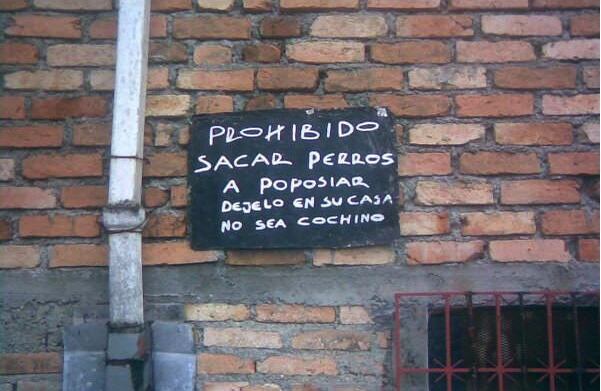 PROHIBIDO
SACAR PERROS
A POPOSIAR
DEJELO EN SU CASA
NO SEA COCHINO